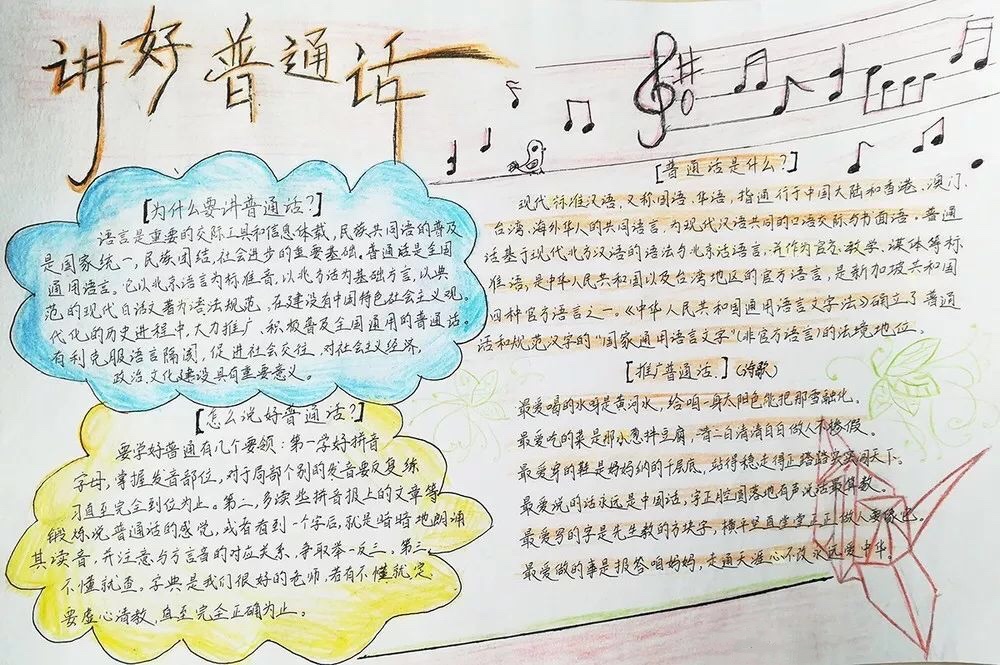 讲好普通话
[为什么要讲普通话?]
语言是重要的交际工具和信息体载,民族共同语的普及
是国家统一,民族团结,社会进步的重要基础。普通话是全国
通用语言。它以北京语言为标准音,以北方话为基础方言,以典
范的现代白话文著为语法规范。在建设有中国特色社会主义现
代化的历史进程中,大力推广、积极普及全国通用的普通话。
有利克服语言隔阂,促进社会交往,对社会主义经济,
政治,文化建设具有重要意义。
[怎么说好普通话?]
要学好普通有几个要领:第一学好拼音
字母,掌握发音部位,对于局部个别的发音要反复练
习直至完全到位为止。第二,多读些拼音报上的文章等
锻炼说普通话的感觉,或者看到一个字后,就是暗暗地朗诵
其读音,并注意与方言音的对应关系,争取举一反三。第三,
不懂就查。字典是我们很好的老师,若有不懂就
要虚心请教,直至完全正确为止。
[普通话是什么?]
现代标准汉语又称国语、华语,指通行于中国大陆和香港、澳门、
台湾,海外华人的共同语言,为现代汉语共同的口语交际与书面语。普通
话基于现代北方汉语的语法与北京话语音,并作为官方、教学、媒体等标
准语,是中华人民共和国以及台湾地区的官方语言,是新加坡共和国
四种官方语言之一。《中华人民共和国通用语言文字法》确立了普通
话和规范汉字的“国家通用语言文字”(非官方语言)的法境地位。
[推广普通话.](诗歌)
最爱喝的水呀是黄河水,给咱一身太阳色能把那雪融化。
最爱吃的菜是那小葱拌豆腐,一青二白清清白白做人不掺假。
最爱穿的鞋是妈妈纳的千层底,站得稳走得正踏踏实实闯天下。
最爱说的话永远是中国话,字正腔圆落地有声说话最算数。
最爱写的字是先生教的方块字,横平竖直堂堂正正做人要像它。
最爱做的事是报答咱妈妈,走遍天涯心不改永远爱中华